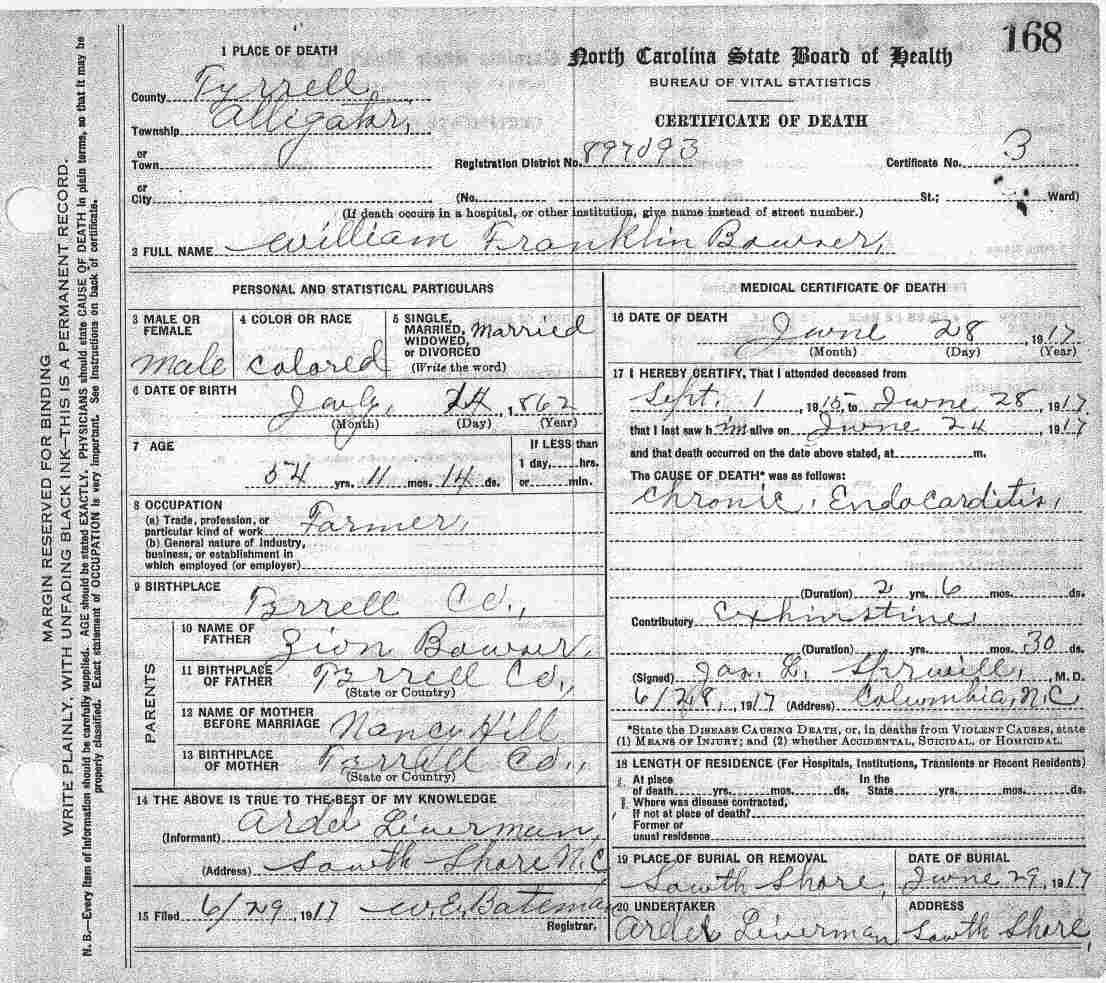 168
1 PLACE OF DEATH
North Carolina State Board of Health
BUREAU OF VITAL STATISTICS
CERTIFICATE OF DEATH
County Tyrrell,
Township Alligator,
or Town
Registration District No. 897093
Certificate No. 3
or City
(No. St.; Ward)
(If death occurs in a hospital, or other institution, give name instead of street number.)
2 FULL NAME William Franklin Bowser,
PERSONAL AND STATISTICAL PARTICULARS
3 MALE OR FEMALE
male
4 COLOR OR RACE
colored
5 SINGLE, MARRIED, WIDOWED, OR DIVORCED
(Write the word)
married
6 DATE OF BIRTH
July, 14 1862
(Month) (Day) (Year)
7 AGE
54 yrs. 11 mos. 14 ds.
If LESS than
1 day,......hrs.
or......min.
8 OCCUPATION
(a) Trade, profession, or
particular kind of work Farmer,
(b) General nature of Industry,
business, or establishment in
which employed (or employer)
9 BIRTHPLACE
Tyrrell Co.,
PARENTS
10 NAME OF FATHER
Zion Bowser,
11 BIRTHPLACE OF FATHER
(State or Country)
Tyrrell Co.,
12 NAME OF MOTHER BEFORE MARRIAGE
Nancy Hill
13 BIRTHPLACE OF MOTHER
(State or Country)
Tyrrell Co.,
14 THE ABOVE IS TRUE TO THE BEST OF MY KNOWLEDGE
(Informant) Ardel Liverman,
(Address) South Shore N.C
15 Filed 6/29, 1917 W.E. Bateman
Registrar.
MEDICAL CERTIFICATE OF DEATH
16 DATE OF DEATH
June 28, 1917
(Month) (Day) (Year)
17 I HEREBY CERTIFY, That I attended deceased from
Sept. 1, 1915, to June 28, 1917
that I last saw him alive on June 24, 1917
and that death occurred on the date above stated, at......m.
The CAUSE OF DEATH* was as follows:
Chronic Endocarditis,
(Duration) 2 yrs. 6 mos. ds.
Contributory
(Duration) yrs. mos. 30 ds.
(Signed) Jas. L. Spruill, M.D.
6/28, 1917 (Address) Columbia, N.C
*State the DISEASE CAUSING DEATH, or, in deaths from VIOLENT CAUSES, state
(1) MEANS OF INJURY; and (2) whether ACCIDENTAL, SUICIDAL, OR HOMICIDAL.
18 LENGTH OF RESIDENCE (For Hospitals, Institutions, Transients or Recent Residents)
At place In the
of death......yrs......mos......ds. State......yrs......mos......ds.
Where was disease contracted,
If not at place of death?
Former or
usual residence
19 PLACE OF BURIAL OR REMOVAL
South Shore,
DATE OF BURIAL
June 29, 1917
20 UNDERTAKER
Ardel Liverman
ADDRESS
South Shore,
MARGIN RESERVED FOR BINDING
WRITE PLAINLY, WITH UNFADING BLACK INK—THIS IS A PERMANENT RECORD.
N. B.—Every item of information should be carefully supplied. AGE should be stated EXACTLY. PHYSICIANS should state CAUSE OF DEATH in plain terms, so that it may be
properly classified. Exact statement of OCCUPATION is very important. See instructions on back of certificate.